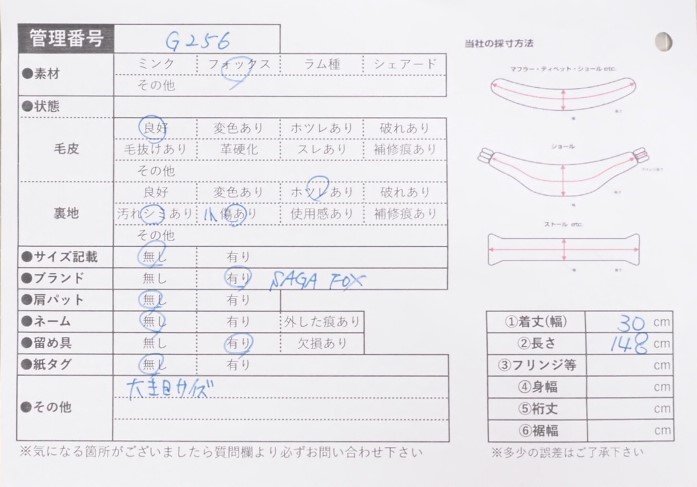 管理番号 G256
●素材 ミンク フォックス ラム種 シェアード
その他
●状態
毛皮 良好 変色あり ホツレあり 破れあり
毛抜けあり 革硬化 スレあり 補修痕あり
その他
裏地 良好 変色あり ホツレあり 破れあり
汚れシミあり 小傷あり 使用感あり 補修痕あり
その他
●サイズ記載 無し 有り
●ブランド 無し 有り SAGA FOX
●肩パット 無し 有り
●ネーム 無し 有り 外した痕あり
●留め具 無し 有り 欠損あり
●紙タグ 無し 有り
●その他 大き目サイズ
※気になる箇所がございましたら質問欄より必ずお問い合わせ下さい
当社の採寸方法
マフラー・ティペット・ショール etc.
ショール
ストール etc.
①着丈(幅) 30 cm
②長さ 148 cm
③フリンジ等 cm
④身幅 cm
⑤裄丈 cm
⑥裾幅 cm
※多少の誤差はご了承下さい